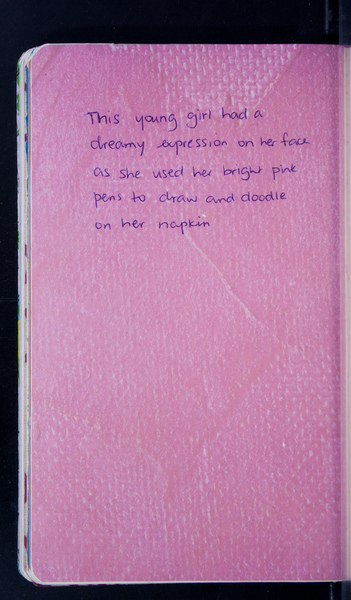 This young girl had a
dreamy expression on her face
as she used her bright pink
pens to draw and doodle
on her napkin